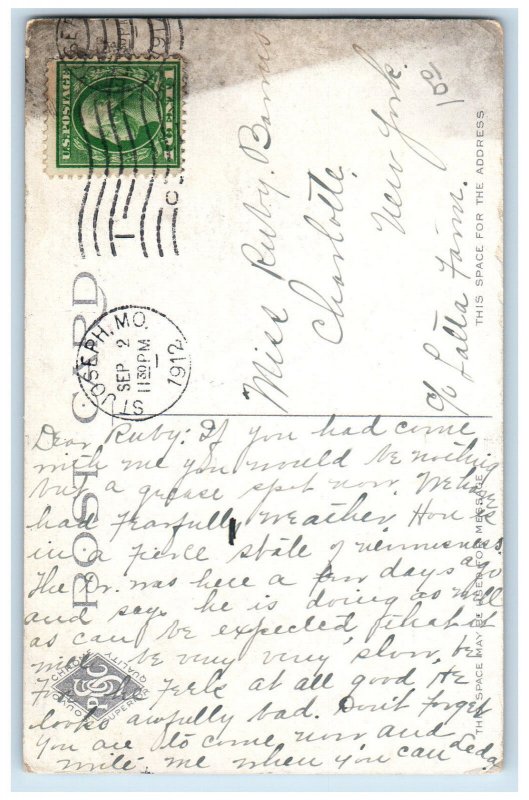 U.S. POSTAGE
1 CENT 1
ST. JOSEPH, MO.
SEP 2
1130PM
1912
POST CARD
THIS SPACE MAY BE USED FOR MESSAGE
THIS SPACE FOR THE ADDRESS
Miss Ruby Barnes
Charlotte,
New York.
c/o Latta Farm.
Dear Ruby: If you had come
with me you would be nothing
but a grease spot now. We have
had fearfully weather.
in a fierce state of nervousness.
The Dr. was here a few days ago
and says he is doing as well
as can be expected, that it
will be very very slow, he
feels at all good. He
looks awfully bad. Don't forget
you are to come now and
write me when you can Leda.
CHROME
QUALITY
SUPERIOR